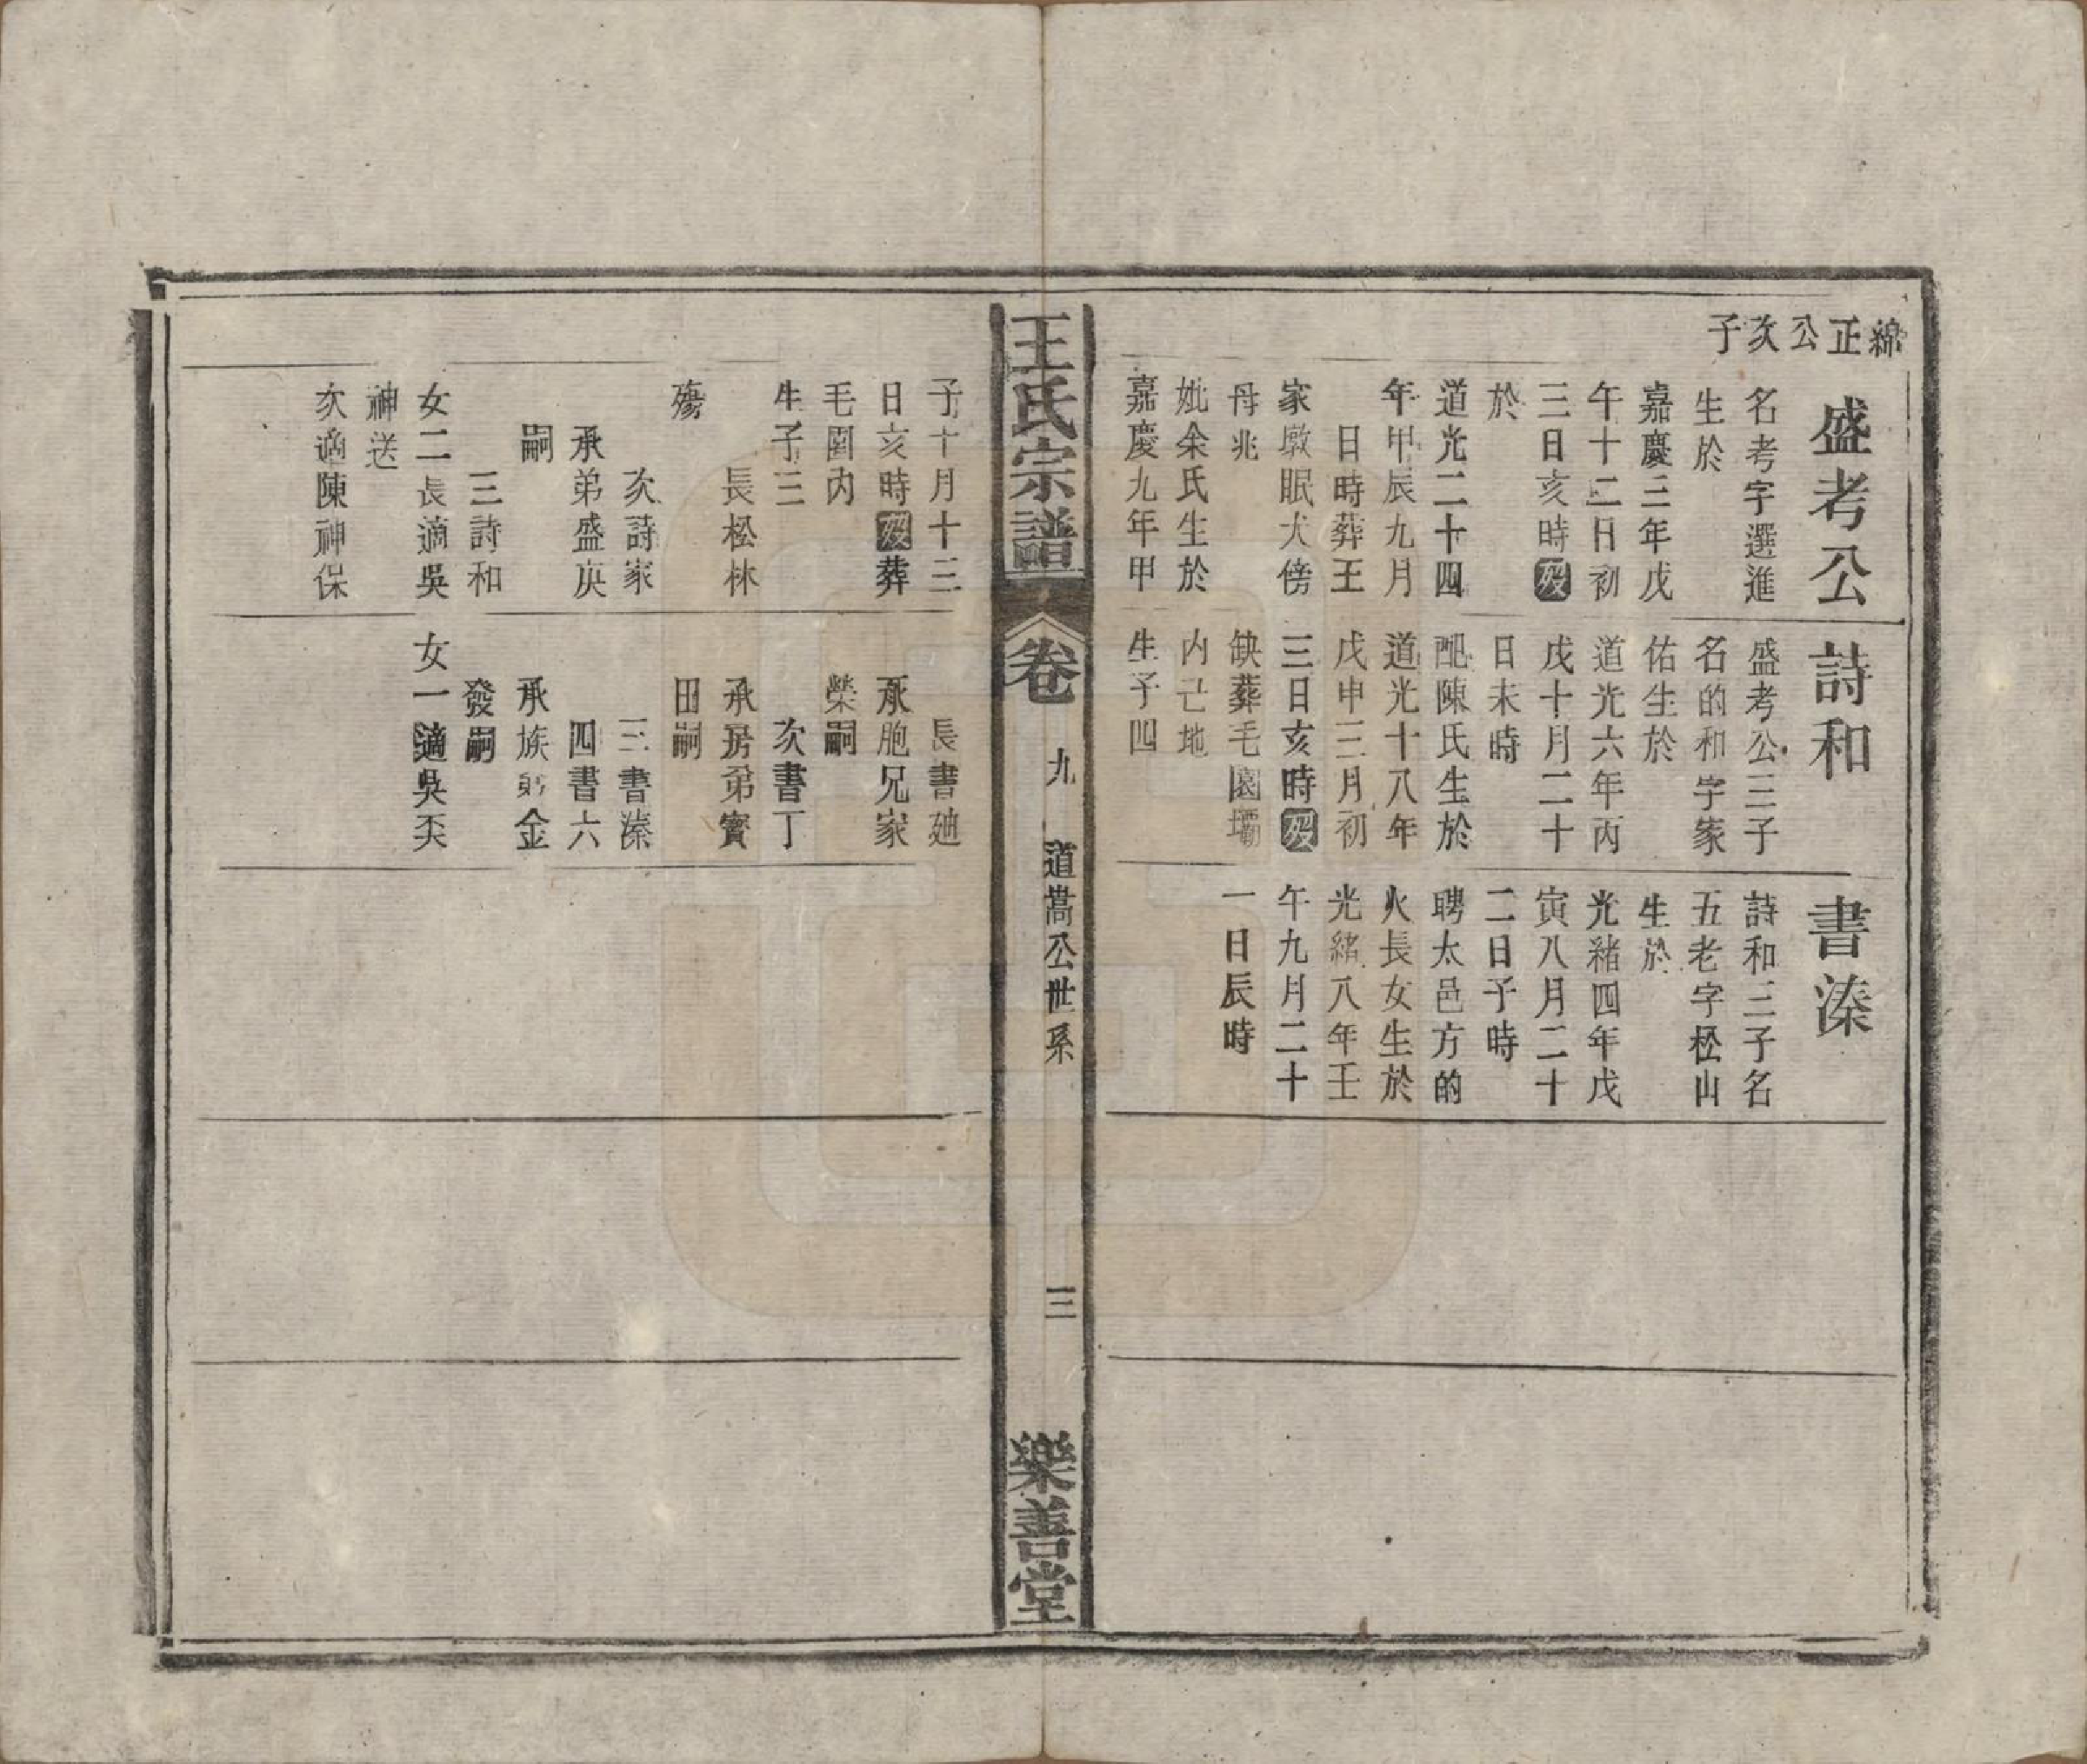 綿正公次子
盛考公
名考字選進
生於
嘉慶三年戊
午十二日初
三日亥時歿
於
道光二十四
年甲辰九月
日時葬王
家墩眠犬傍
母兆
妣余氏生於
嘉慶九年甲
子十月十三
日亥時歿葬
毛園內
生子三
長松林
殤
次詩家
承弟盛庚
嗣
三詩和
女二長適吳
神送
次適陳神保
詩和
盛考公三子
名的和字家
佑生於
道光六年丙
戌十月二十
日未時
配陳氏生於
道光十八年
戊申三月初
三日亥時歿
缺葬毛園壩
內亡地
生子四
長書廸
承胞兄家
榮嗣
次書丁
承房弟寳
田嗣
三書溱
四書六
承族弟金
發嗣
女一適吳天
書溱
詩和三子名
五老字松山
生於
光緒四年戊
寅八月二十
二日子時
聘太邑方的
火長女生於
光緒八年壬
午九月二十
一日辰時
王氏宗譜
卷
九
道嵩公世系
三
樂善堂